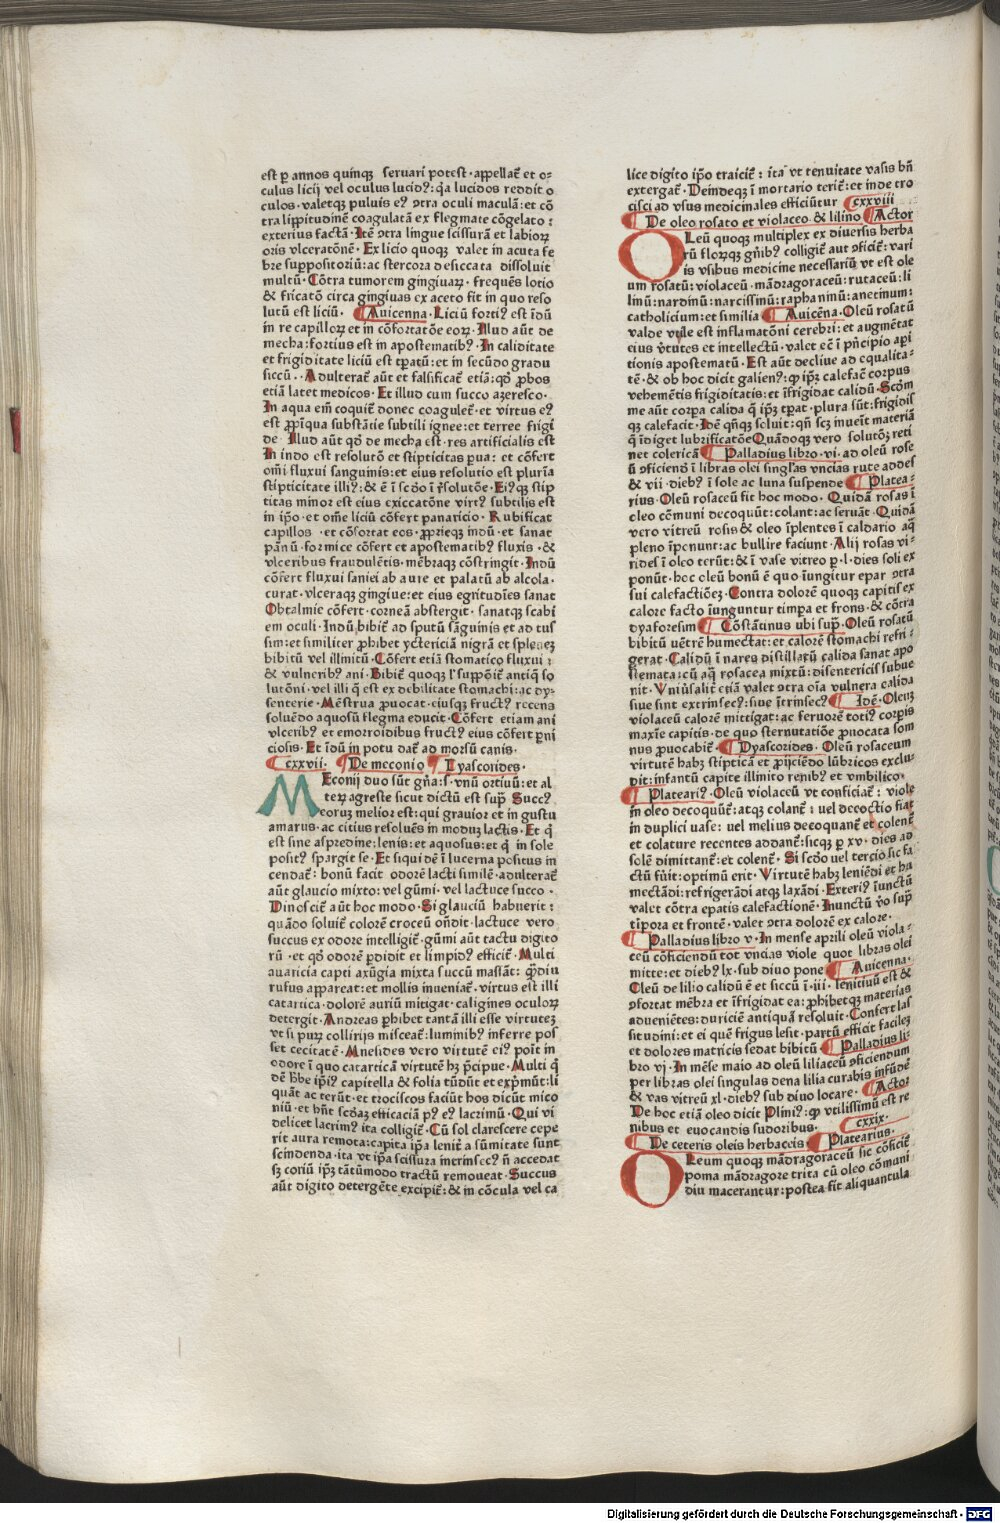 est ꝑ annos quinqꝫ seruari potest · appellat᷑ et o⸗
culus licij vel oculus lucidꝰ: q̃a lucidos reddit o
culos · valetqꝫ puluis eꝰ ↄtra oculi maculã: et cõ
tra lippitudinẽ coagulatã ex flegmate cõgelato :
exterius factã · Itẽ ↄtra lingue scissurã et labioꝝ
oris vlceratõnẽ · Ex licio quoqꝫ valet in acuta fe
bre suppositoriũ: ac stercora desiccata dissoluit
multũ · Cõtra tumorem gingiuaꝝ · frequẽs lotio
& fricatõ circa gingiuas ex aceto fit in quo reso
lutũ est liciũ · ¶ Auicenna · Liciũ fortiꝰ est īdũ
in re capilloꝝ et in cõfortatõe eoꝝ · Illud aũt de
mecha: fortius est in apostematibꝰ · In caliditate
et frigiditate liciũ est tꝑatũ: et in secũdo gradu
siccũ · Adulterat᷑ aũt et falsificat᷑ etiã: qđ ꝓbos
etiã latet medicos · Et illud cum succo aꝫeresco ·
In aqua em̃ coquit᷑ donec coagulet᷑ · et virtus eꝰ
est ꝓpīqua substãtie subtili ignee: et terree frigi
de · Illud aũt qđ de mecha est · res artificialis est
In indo est resolutõ et stipticitas ꝑua: et cõfert
om̃i fluxui sanguinis: et eius resolutio est plurīa
stipticitate illiꝰ: & ē ī scđo ī r̃solutõe · Eiꝰqꝫ stip
titas minor est eius exiccatõne virtꝰ subtilis est
in ipo · et om̃e liciũ cõfert panaricio · Rubificat
capillos · et cõfortat eos · ꝓprieqꝫ indũ · et sanat
pãnũ · formice cõfert et apostematibꝰ fluxis · &
vlceribus fraudulẽtis · mẽbraqꝫ cõstringit · Indũ
cõfert fluxui saniei ab aure et palatũ ab alcola ·
curat · vlceraqꝫ gingiue: et eius egritudīes sanat
Obtalmie cõfert · corneã abstergit · sanatqꝫ scabi
em oculi · Indũ bibit᷑ ad sputũ sãguinis et ad tus
sim: et similiter ꝓhibet yctericiã nigrã et spleneꝫ
bibitũ vel illinitũ · Cõfert etiã stomatico fluxui :
& vulneribꝰ ani · Bibit᷑ quoqꝫ l̓ suppõit᷑ antiq̃ so
lutõni · vel illi q̃ est ex debilitate stomachi: ac dy⸗
senterie · Mẽstrua ꝓuocat · eiusqꝫ fructꝰ recens
soluẽdo aquosũ flegma educit · Cõfert etiam ani
vlceribꝰ et emorroidibus fructꝰ eius cõfert ꝑni
ciosis · Et īdũ in potu dat᷑ ad morsũ canis ·
¶ cxxvii · ¶ De meconio ¶ Dyascorides ·
Meconij duo sũt gñа: s · vnũ ortiuũ: et al
teꝝ agreste sicut dictũ est suꝑ Succꝰ
eoruꝫ melior est: qui grauior et in gustu
amarus · ac citius resoluẽs in moduꝫ lactis · Et q̃
est sine aspredine: lenis: et aquosus: et q̃ in sole
positꝰ spargit se · Et siqui dẽ ī lucerna positus in
cendat᷑: bonũ facit odorẽ lacti similẽ · adulterat᷑
aũt glaucio mixto: vel gũmi · vel lactuce succo ·
Dinoscit᷑ aũt hoc modo · Si glauciũ habuerit :
quãdo soluit᷑ colorẽ croceũ oñdit · lactuce vero
succus ex odore intelligit᷑ · gũmi aũt tactu digito
rũ · et qđ odorẽ ꝑdidit et limpidꝰ efficit᷑ · Multi
auaricia capti axũgia mixta succũ maſtãt: q̃diu
rufus appareat: et mollis inueniat᷑ · virtus est illi
catartica · dolorẽ auriũ mitigat · caligines oculoꝝ
detergit · Andreas ꝓhibet tantã illi esse virtuteꝫ
vt si puꝝ collirijs misceat᷑: luminibꝰ inferre pos
set cecitatẽ · Mnesides vero virtutẽ eiꝰ poīt in
odore ī quo catarticã virtutẽ hꝫ p̃cipue · Multi q̃
dẽ hr̃be ipiꝰ capitella & folia tũdũt et exp̃mũt: li
quãt ac terũt · et trociscos faciũt hos dicũt mico
niũ · et hñt scđaꝫ efficaciã pꝰ eꝰ lacrimũ · Qui vi
delicet lacrimꝰ ita colligit᷑ · Cũ sol clarescere cepe
rit aura remota: capita ipa lenit᷑ a sũmitate sunt
scindenda · ita vt ipa scissura intrinsecꝰ ñ accedat
sꝫ coriũ ipꝫ tãtũmodo tractũ remoueat · Succus
aũt digito detergẽte excipit᷑: & in cõcula vel ca
lice digito ipo traicit᷑ : ita vt tenuitate vasis bñ
extergat᷑ · Deindeqꝫ ī mortario terit᷑: et inde tro
cisci ad vsus medicinales efficiũtur ¶ cxxviii
¶ De oleo rosato et violaceo & lilino ¶ Actor
Oleũ quoqꝫ multiplex ex diuersis herba
rũ floꝝqꝫ gñibꝰ colligit᷑ aut ↄficit᷑: vari
is vsibus medicine necessariũ vt est ole
um rosatũ: violaceũ · mãdragoraceũ: rutaceũ: li
linũ: nardinũ: narcissinũ: raphaninũ: anetinum:
catholicium: et similia ¶ Auicẽna · Oleũ rosatũ
valde vtile est inflamatõni cerebri: et augmẽtat
eius v̓tutes et intellectũ · valet eẽ ī p̃ncipio aꝑi
tionis apostematũ · Est aũt decliue ad equalita⸗
tẽ · & ob hoc dicit galienꝰ: ꝙ ipꝫ calefac᷑ corpus
vehemẽtis frigiditatis: et ifrigidat calidũ · Scõm
me aũt corpa calida q̃ ipꝫ tꝑat · plura sũt: frigidis
qꝫ calefacit · Idẽ qñqꝫ soluit: qñ scꝫ inueīt materiã
q̃ īdiget lubrificatõe Quãdoqꝫ vero solutõꝫ reti
net colericã ¶ Palladius libro · vi · ad oleũ rose
ũ ↄficienđ ī libras olei singl̓as vncias rute addes
& vii · diebꝰ ī sole ac luna suspende ¶ Platea⸗
rius · Oleũ rosaceũ fit hoc modo · Quidã rosas ī
oleo cõmuni decoquũt: colant: ac seruãt · Quidã
vero vitreũ rosis & oleo īplentes ī caldario aq̃
pleno īponunt: ac bullire faciunt · Alij rosas vi⸗
rides ī oleo terũt: & ī vase vitreo ꝑ · l · dies soli ex
ponũt · hoc oleũ bonũ ē quo iungitur epar ↄtra
sui calefactiõeꝫ · Contra dolorẽ quoqꝫ capitis ex
calore facto iunguntur timpa et frons · & cõtra
dyaforesim ¶ Cõstãtinus vbi suꝑ · Oleũ rosatũ
bibitũ uẽtrẽ humectat: et calorẽ stomachi refri⸗
gerat · Calidũ ī nares distillatũ calida sanat apo
stemata: cũ aq̃ rosacea mixtũ: disentericis subue
nit · Vniũsalit᷑ etiã valet ↄtra oīa vulnera calida
siue sint extrinsecꝰ: siue ītrinsecꝰ ¶ Idẽ · Oleuꝫ
violaceũ calorẽ mittigat: ac feruorẽ totiꝰ corꝑis
maxīe capitis · de quo sternutatiõe ꝓuocata som
nus ꝓuocabit᷑ · ¶ Dyascorides · Oleũ rosaceum
virtutẽ habꝫ stipticã et ꝓijciẽdo lũbricos exclu⸗
dit: infantũ capite illinito renibꝰ et vmbilico ·
¶ Plateariꝰ · Oleũ violaceũ vt conficiat᷑ : viole
in oleo decoquũt᷑: atqꝫ colant᷑ : uel decoctio fiat
in duplici uase: uel melius decoquant᷑ et colent᷑
et colature recentes addant᷑: sicqꝫ ꝑ xv · dies ad
solẽ dimittant᷑: et colent᷑ · Si scđo uel tercio sic fa
ctũ fũit: optimũ erit · Virtutẽ habꝫ leniẽdi et hu
mectãdi: refrigerãdi atqꝫ laxãdi · Exteriꝰ iunctũ
valet cõtra epatis calefactionẽ · Inunctũ v̓o suꝑ
tīpora et frontẽ · valet ↄtra dolorẽ ex calore ·
¶ Palladius libro v · In mense aprili oleũ viola⸗
ceũ cõficiendũ tot vncias viole quot libras olei
mitte: et diebꝰ lx · sub diuo pone ¶ Auicenna ·
Oleũ de lilio calidũ ē et siccũ ī · iii · lenitiuũ est &
ↄfortat mẽbra et ifrigidat ea: ꝓhibetqꝫ materias
adueniẽtes: duriciẽ antiquã resoluit · Confert las
situdini: et ei quẽ frigus lesit · partũ efficit facileꝫ
et dolores matricis sedat bibitũ ¶ Palladius li⸗
bro vj · In mẽse maio ad oleũ liliaceũ ↄficiendum
per libras olei singulas dena lilia curabis infũdẽ
& vas vitreũ xl · diebꝰ sub diuo locare · ¶ Actor
De hoc etiã oleo dicit Pliniꝰ: ꝙ vtilissimũ est re
nibus et euocandis sudoribus · ¶ cxxix ·
¶ De ceteris oleis herbaceis ¶ Platearius ·
Oleum quoqꝫ mãdragoraceũ sic cõficit᷑
poma mãdragore trita cũ oleo cõmuni
diu macerantur: postea fit aliquantula
Digitalisierung gefördert durch die Deutsche Forschungsgemeinschaft - DFG